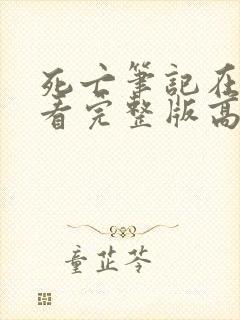 死亡筆記在
看完整版高
童芷苓